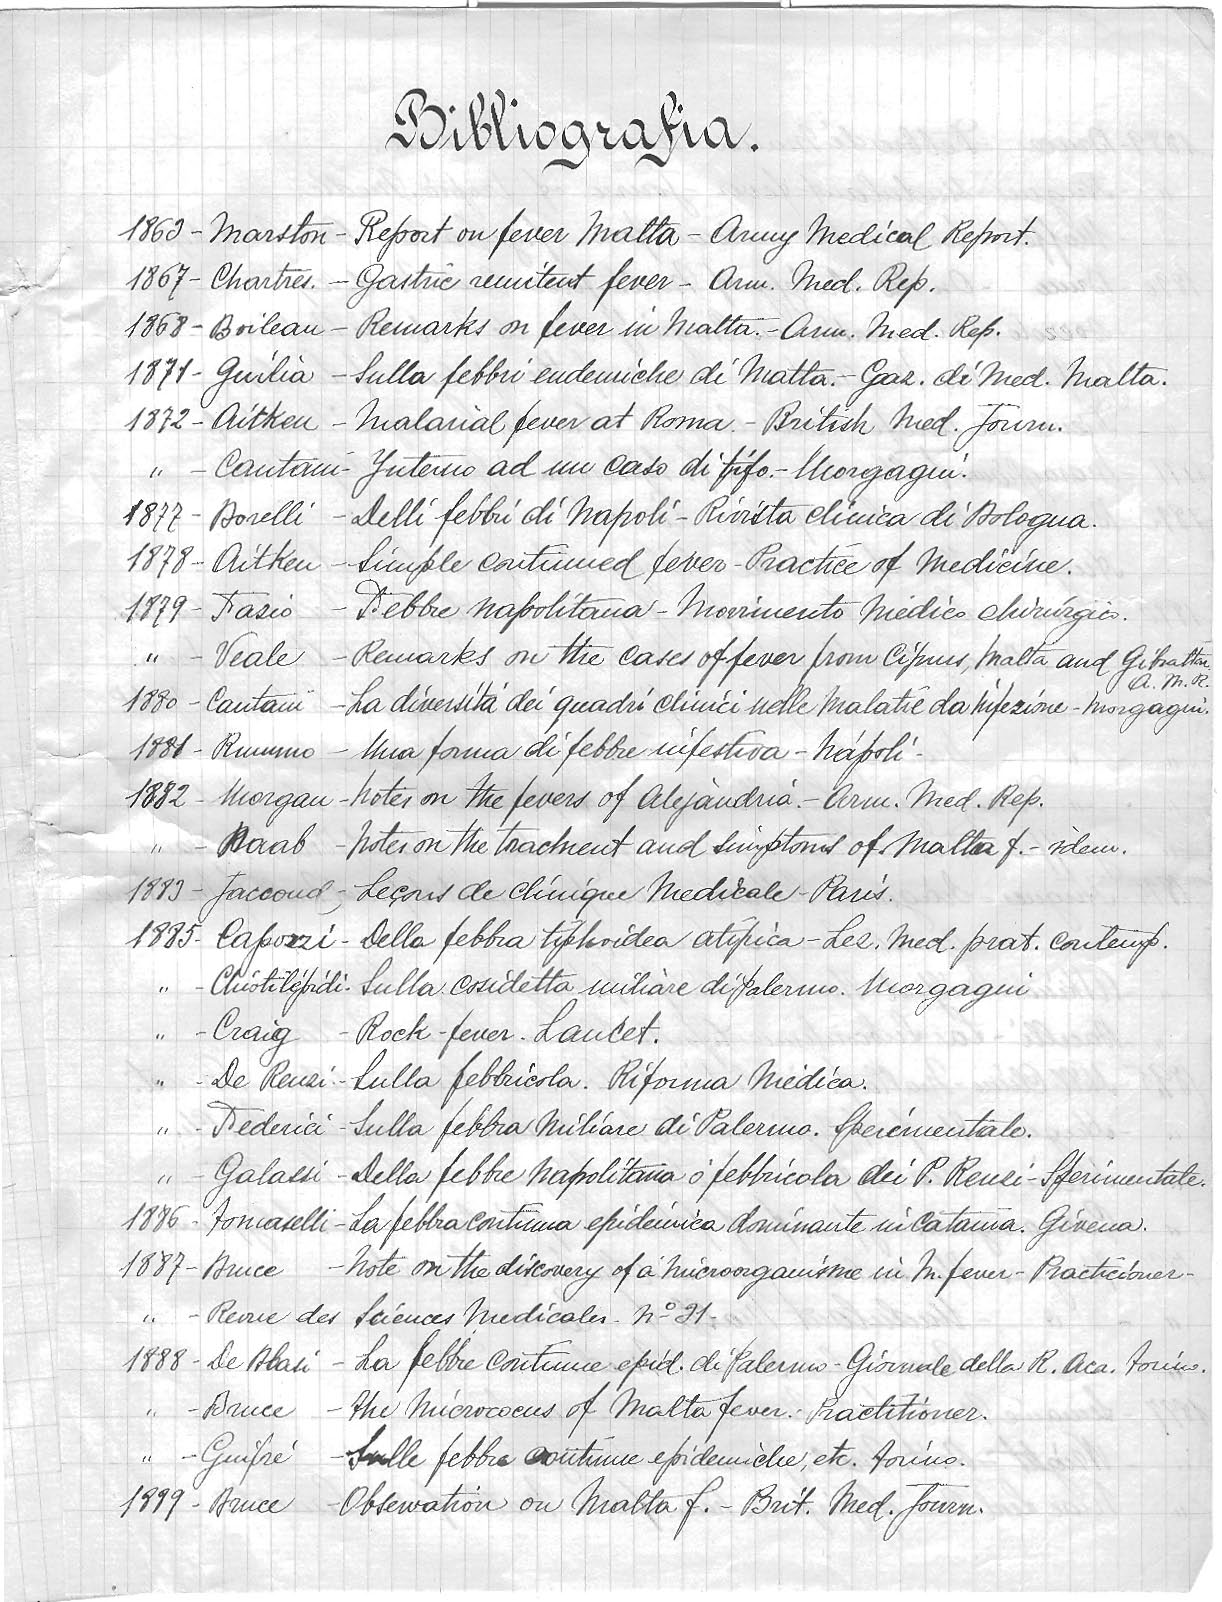 Bibliografia.
1863 - Marston - Report on fever Malta - Army Medical Report.
1867 - Chartres. - Gastric remitent fever - Arm. Med. Rep.
1868 - Boileau - Remarks on fever in Malta. - Arm. Med. Rep.
1871 - Guilia - Sulla febbri endemiche di Malta. - Gaz. di Med. Malta.
1872 - Aitken - Malarial fever at Roma - British Med. Journ.
" - Cantani - Interno ad un caso di tifo. - Morgagni.
1877 - Borelli - Delli febbri di Napoli - Rivista clinica di Bologna.
1878 - Aitken - Simple continued fever - Practice of Medicine.
1879 - Fazio - Febbre napolitana - Movimento Medico chirúrgico.
" - Veale - Remarks on the cases of fever from Ciprus, Malta and Gibraltar.
A. M. R.
1880 - Cantani - La diversitá dei quadri clinici nelle malatie da infezione - Morgagni.
1881 - Rummo - Una forma di febbre infestiva - Nápoli -
1882 - Morgan - Notes on the fevers of Alejandria. - Arm. Med. Rep.
" - Raab - Notes on the tractment and simptoms of Malta f. - idem.
1883 - Jaccoud - Leçons de clinique Medicale - Paris.
1885 - Capozzi - Della febbra tiphoidea atipica - Lez. Med. prat. contemp.
" - Sulla cosidetta miliare di Palermo. Morgagni
" - Craig - Rock-fever. Lancet.
" - De Renzi - Sulla febbricola. Riforma Medica.
" - Federici - Sulla febbra miliare di Palermo. Sperimentale.
" - Galassi - Della febbre napolitana ó febbricola dei P. Renzi - Sperimentale.
1886 - Tomaselli - La febbra continua epidémica dominante in Catania. Givena.
1887 - Bruce - Note on the discovery of a microorganisme in M. fever - Practicioner -
" - Revue des Sciences Medicales - Nº 21 -
1888 - De Blasi - La febbre continue epid. di Palermo - Giornale della R. Aca. Torino.
" - Bruce - the Micrococus of Malta fever. - Practitioner.
" - Guifré - Sulle febbre continue epidemiche, etc. Torino.
1899 - Bruce - Observation on Malta f. - Brit. Med. Journ.